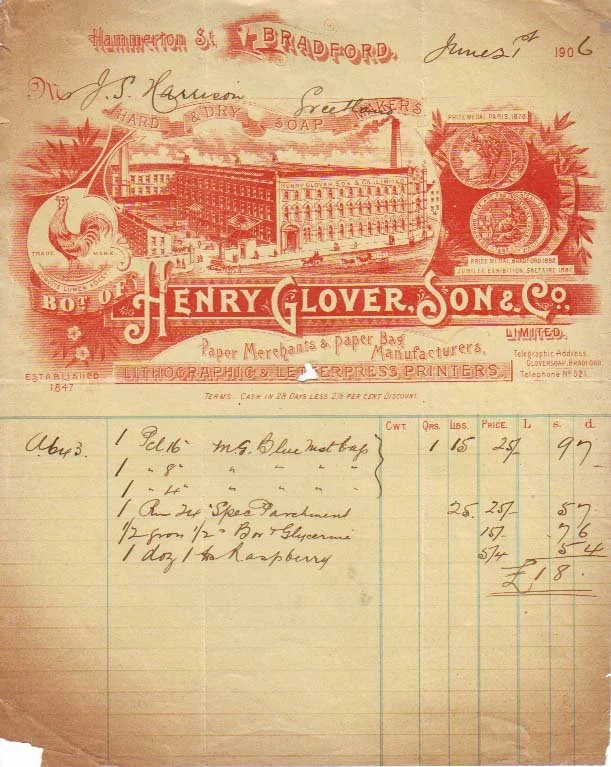 Hammerton St. BRADFORD. June 1st 1906
Mr J. S. Harrison
HARD & DRY SOAP MAKERS
PRIZE MEDAL PARIS, 1878
HENRY GLOVER, SON & CO. LIMITED
TRADE MARK
PRIZE MEDAL, BRADFORD, 1882
JUBILEE EXHIBITION, SALTAIRE 1887
BOT. OF HENRY GLOVER, SON & Co.,
LIMITED.
Paper Merchants & Paper Bag Manufacturers,
Telegraphic Address
GLOVERSOAP, BRADFORD.
Telephone No 521.
LITHOGRAPHIC & LETTERPRESS PRINTERS.
ESTABLISHED
1847
TERMS CASH IN 28 DAYS LESS 2½ PER CENT DISCOUNT.
CWT. QRS. LBS. PRICE. L s. d.
1 Pcl 16" M.G. Blue Bags 1 15 25/- 9 7
1 " 8" " " " "
1 " 4" " " " "
1 Rm 24" Spec Parchment 25 25/- 5 7
1/2 gross 1/2s Bor & Glycerine 15/- 7 6
1 doz 1 Raspberry 5/4 5 4
£1 8